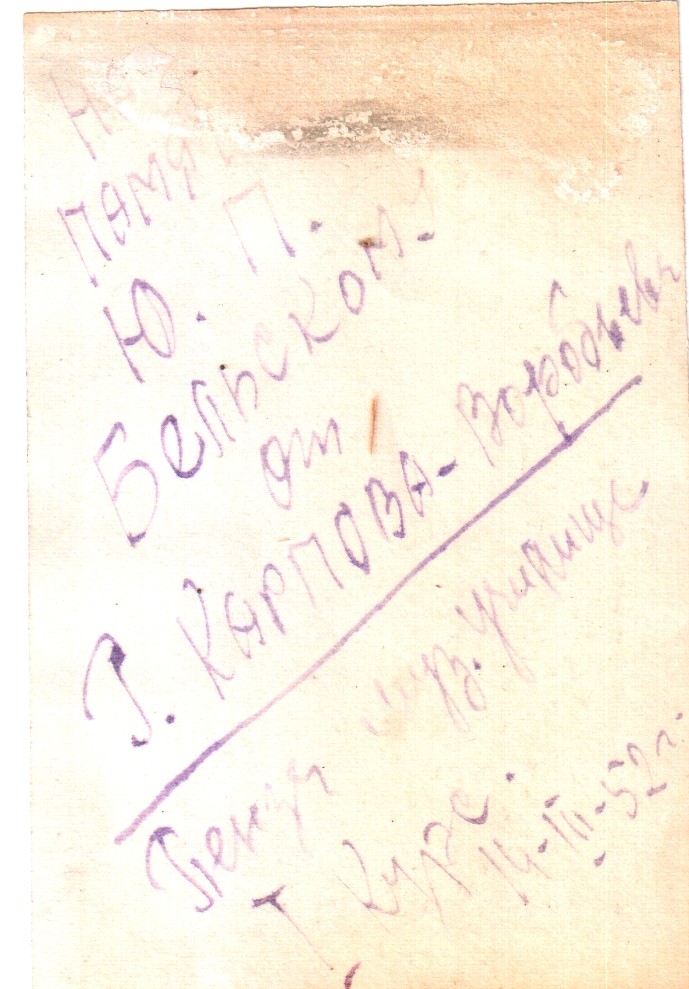 На
памя
Ю. П.
Бельском.
от
Г. Карпова-Воробьева
Пенза муз. училище
I Курс.
III-52 г.